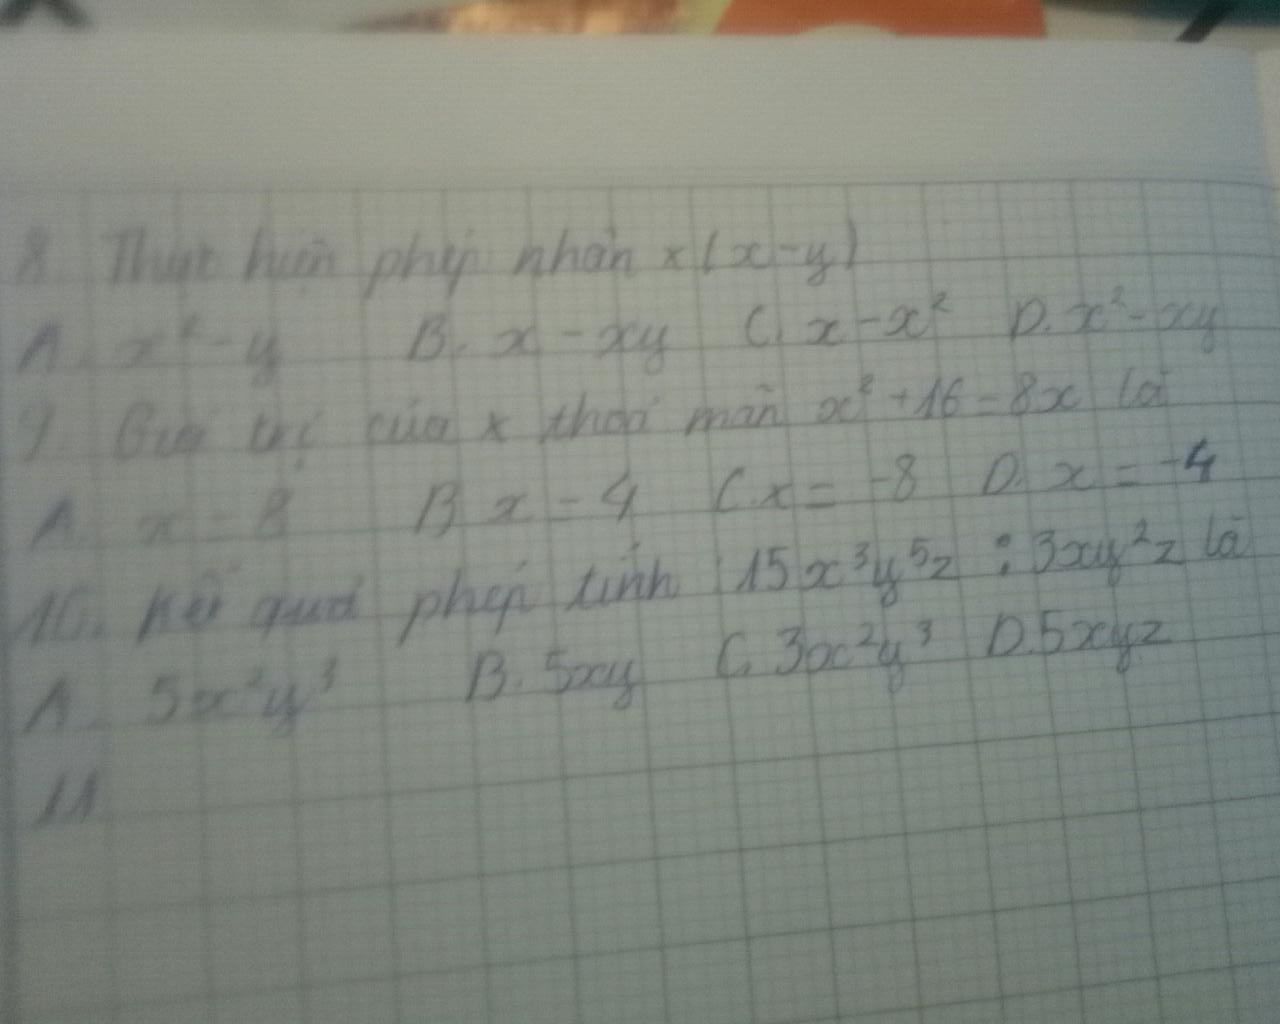 8. Thực hiện phép nhân x(x-y)
A. x²-y B. x-xy C. x-x² D. x²-xy
9. Giá trị của x thoả mãn x²+16=8x là
A. x=8 B. x=4 C. x=-8 D. x=-4
10. Kết quả phép tính 15x³y⁵z : 3xy²z là
A. 5x²y³ B. 5xy C. 3x²y³ D. 5xyz
11